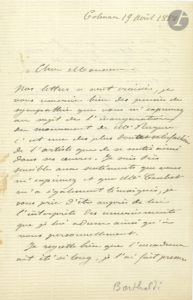 Colmar 19 Avril 18
Cher Monsieur
Nos lettres se sont croisées, je
vous remercie bien des pensées de
sympathie que vous m'exprimez
au sujet de l'inauguration
du monument de Mr
c'est une des plus
de l'artiste que de se sentir aimé
dans ses œuvres. Je suis très
sensible aux sentiments que vous
m'exprimez et que Mr
m'a également témoignés, je
vous prie d'être auprès de lui
l'interprète des remerciements
que je lui adresse ainsi qu'à
vous personnellement.
Je regrette bien que l'
ait été si long, je l'ai fait
Bartholdi